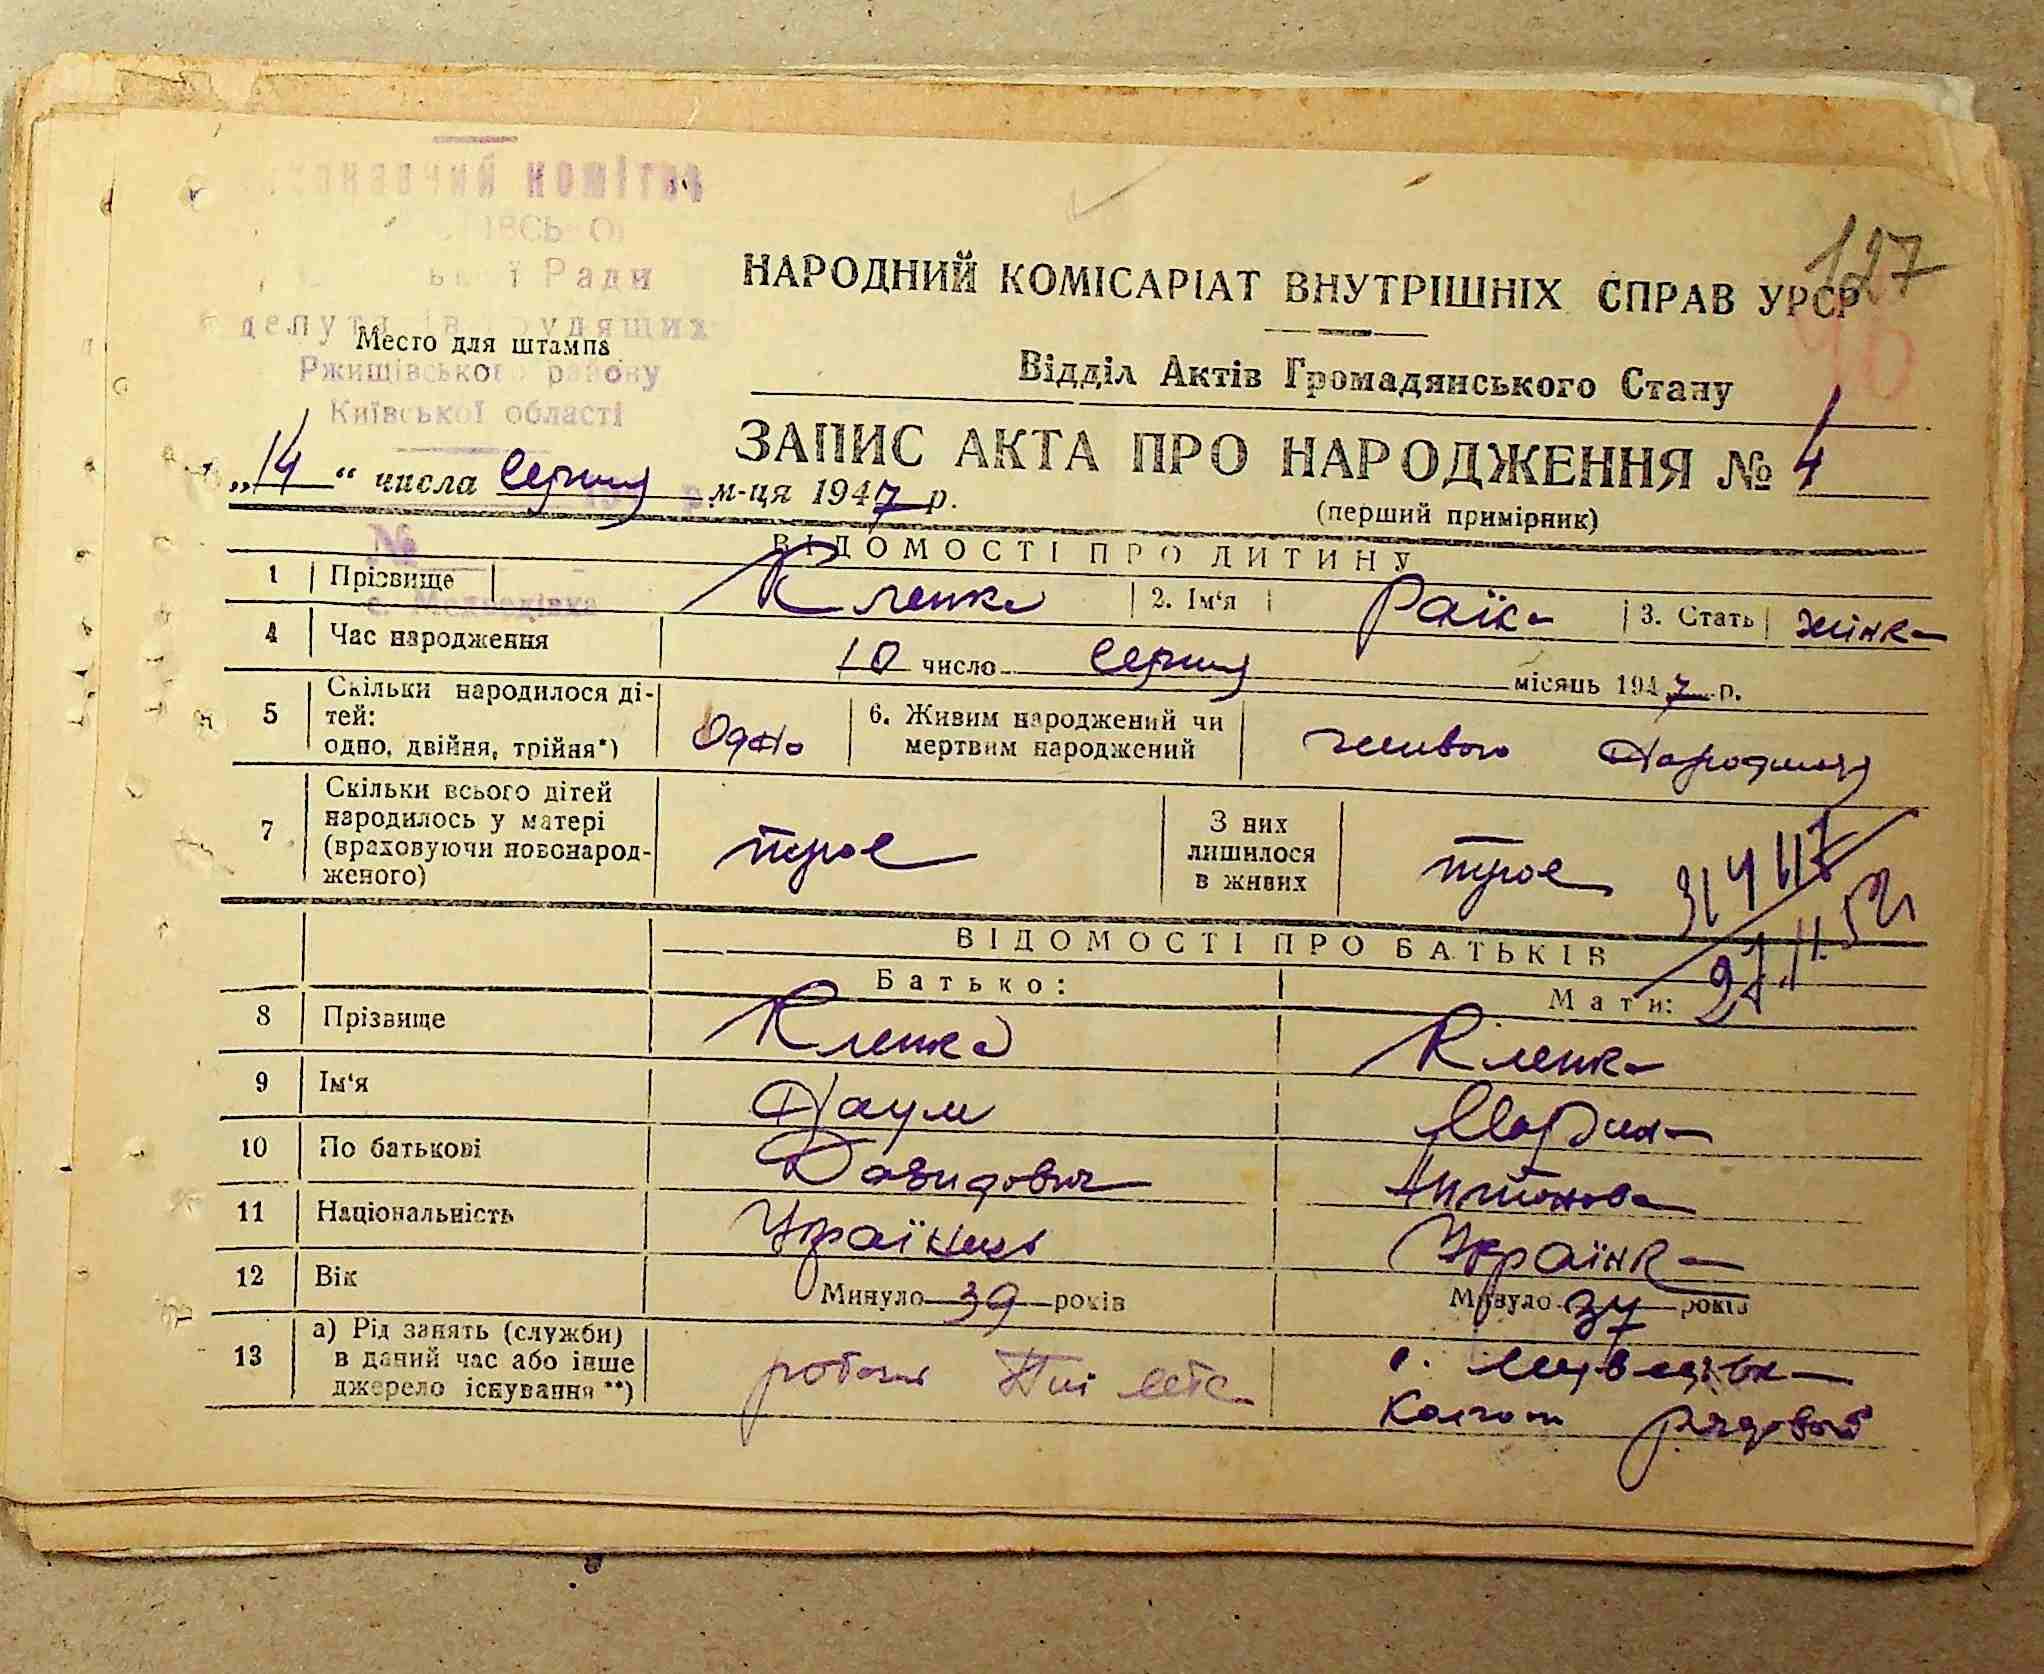 комітет
Ради
Место для штампа
Ржищівського району
Київської області
127
НАРОДНИЙ КОМІСАРІАТ ВНУТРІШНІХ СПРАВ УРСР
Відділ Актів Громадянського Стану
ЗАПИС АКТА ПРО НАРОДЖЕННЯ № 4
(перший примірник)
„14“ числа Серпня м-ця 1947 р.
№
ВІДОМОСТІ ПРО ДИТИНУ
1 Прізвище Кленка 2. Ім'я Раїка 3. Стать жінка
с. Медведівка
4 Час народження 10 число Серпня місяць 1947 р.
5 Скільки народилося ді-
тей:
одно, двійня, трійня*) Одно
6. Живим народжений чи
мертвим народжений живого
7 Скільки всього дітей
народилось у матері
(враховуючи новонарод-
женого) троє
З них
лишилося
в живих троє
ВІДОМОСТІ ПРО БАТЬКІВ
Батько: Мати:
8 Прізвище Кленка Кленка
9 Ім'я Наум Марина
10 По батькові Давидович Антонова
11 Національність Українець Українка
12 Вік Минуло 39 років Минуло 37 років
13 а) Рід занять (служби)
в даний час або інше
джерело існування **)